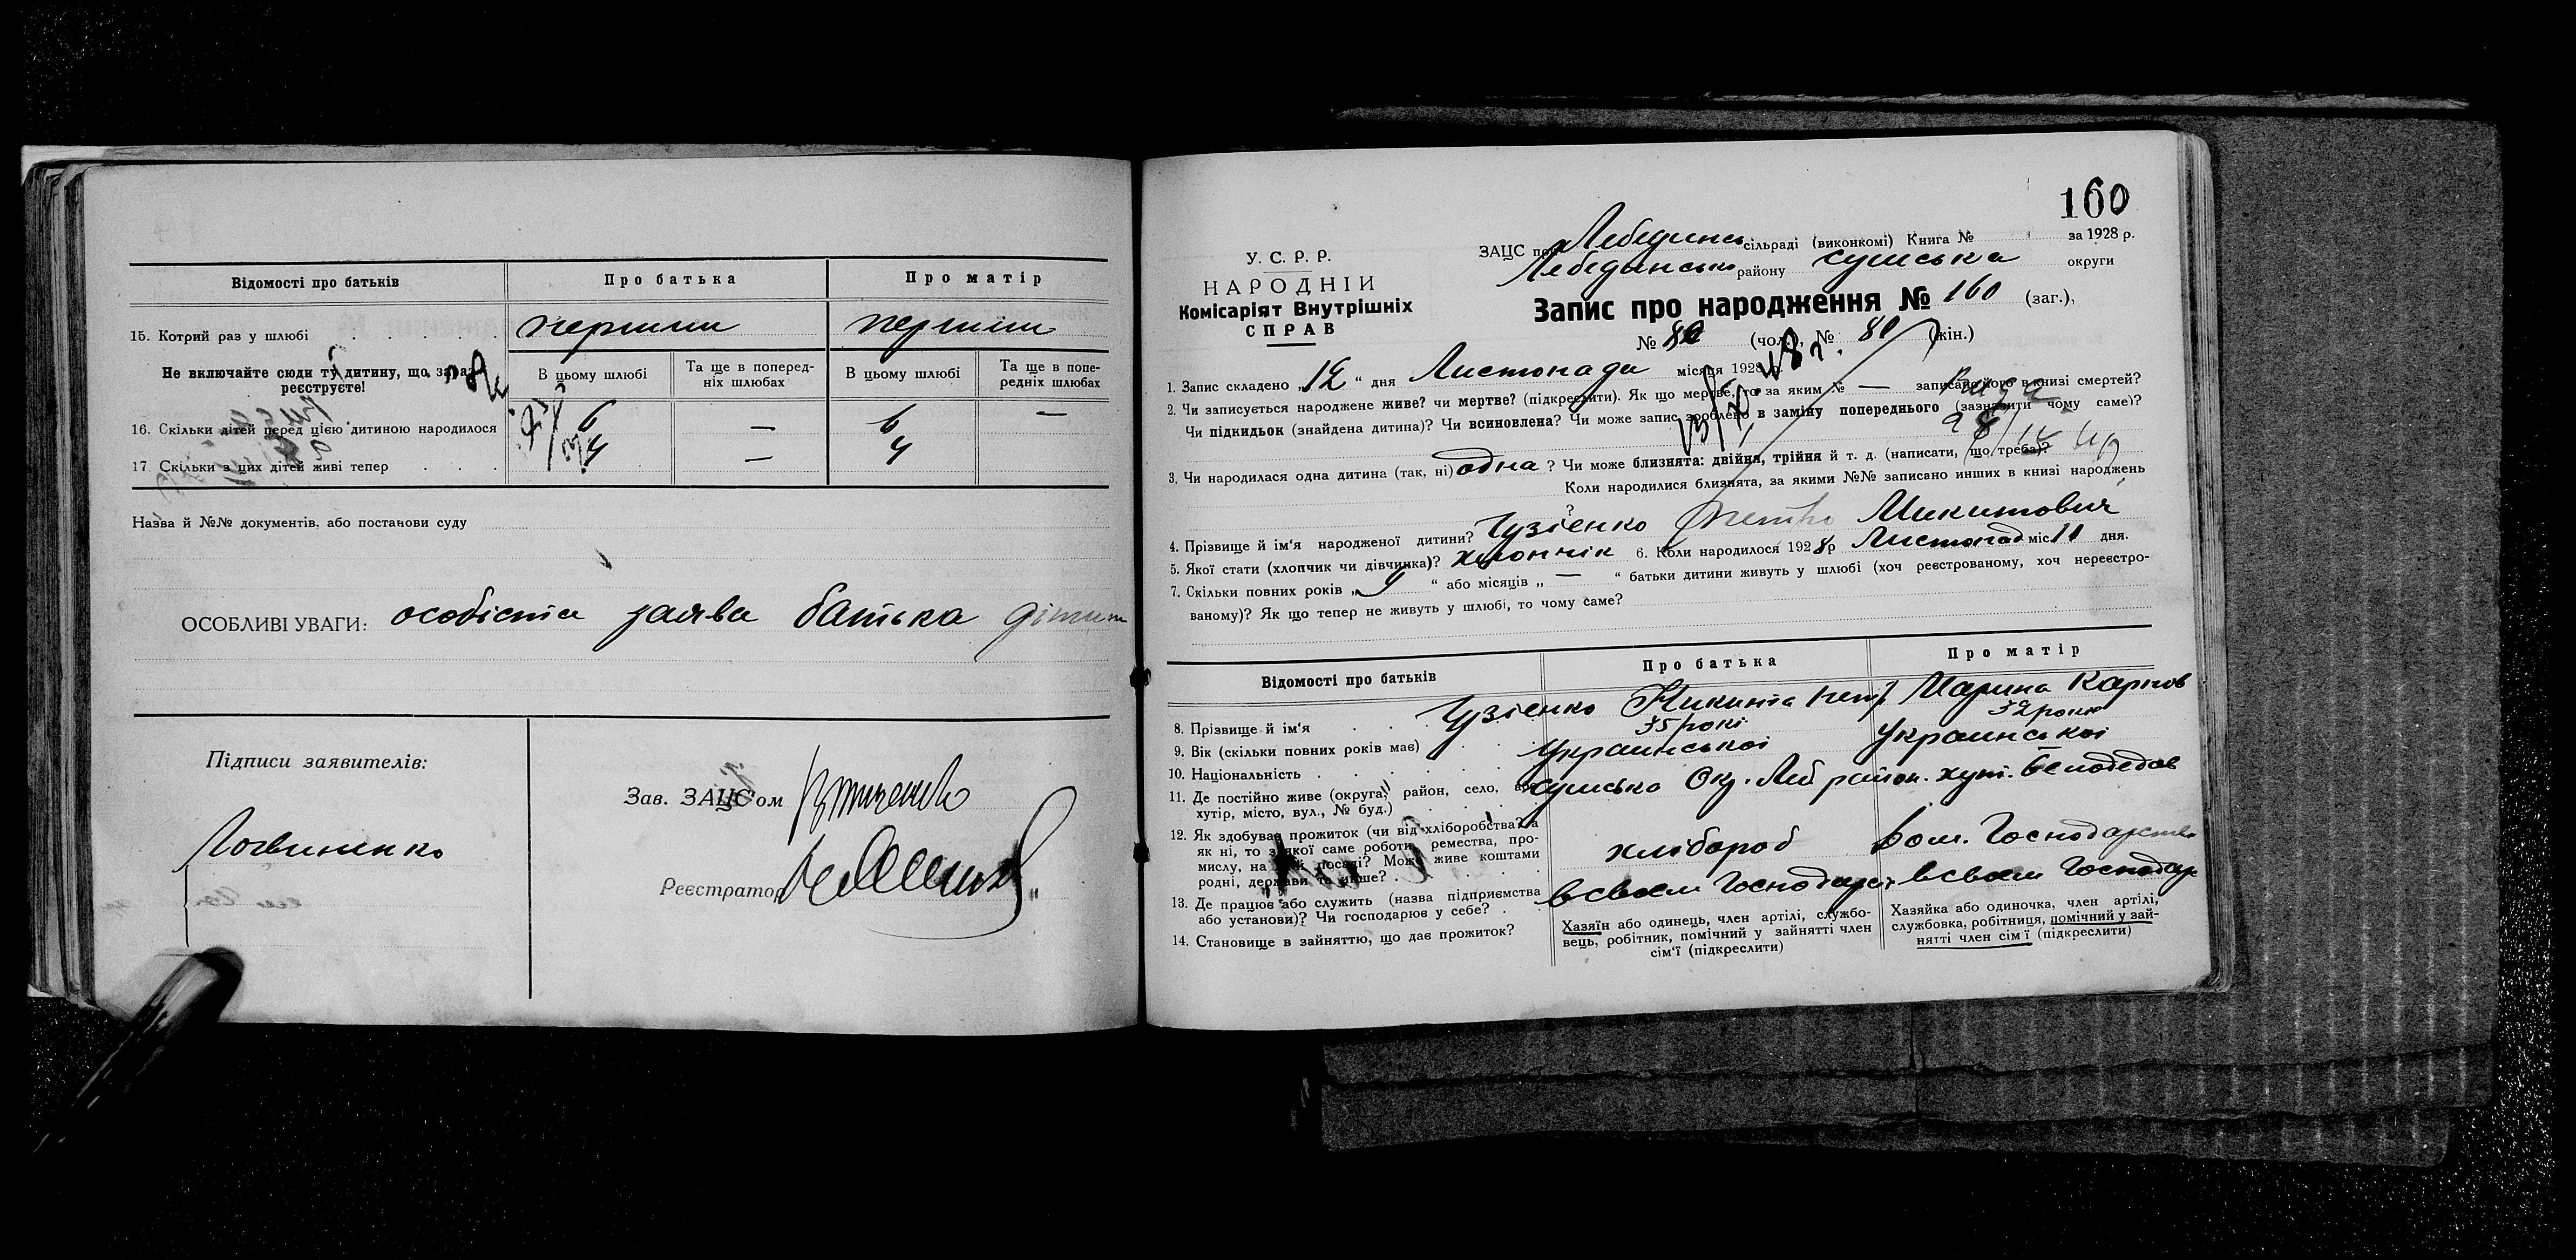 Відомості про батьків
Про батька
Про матір
15. Котрий раз у шлюбі
першим
першим
Не включайте сюди ту дитину, що зараз реєструєте!
В цьому шлюбі
Та ще в поперед-
ніх шлюбах
В цьому шлюбі
Та ще в попе-
редніх шлюбах
16. Скільки дітей перед цією дитиною народилося
6
—
6
—
17. Скільки з цих дітей живі тепер
4
—
4
Назва й №№ документів, або постанови суду
ОСОБЛИВІ УВАГИ: особіста заява батька
Підписи заявителів:
Логвиненко
Зав. ЗАЦС'ом
Реєстратор
160
У. С. Р. Р.
НАРОДНІЙ
Комісаріят Внутрішніх
СПРАВ
ЗАЦС при Лебединсь сільраді (виконкомі) Книга № за 1928 р.
Лебединсько району Сумська округи
Запис про народження № 160 (заг.),
№ 80 (чол.), № 80 (жін.)
1. Запис складено „12“ дня Листопада місяця 1928 р.
2. Чи записується народжене живе? чи мертве? (підкреслити). Як що мертве, то за яким № — записано його в книзі смертей?
Чи підкидьок (знайдена дитина)? Чи всиновлена? Чи може запис зроблено в заміну попереднього (зазначити чому саме)?
3. Чи народилася одна дитина (так, ні) одна? Чи може близнята: двійня, трійня й т. д. (написати, що треба)?
Коли народилися близнята, за якими №№ записано инших в книзі народжень
?
4. Прізвище й ім'я народженої дитини? Гузієнко Петро Микитович
5. Якої стати (хлопчик чи дівчинка)? хлопчік 6. Коли народилося 1928 р Листопад міс 11 дня.
7. Скільки повних років „ “ або місяців „ — “ батьки дитини живуть у шлюбі (хоч реєстрованому, хоч нереєстро-
ваному)? Як що тепер не живуть у шлюбі, то чому саме?
Відомості про батьків
Про батька
Про матір
8. Прізвище й ім'я
Гузієнко Никита Пет
Марина Карпов
9. Вік (скільки повних років має)
35 рокі
32 роки
10. Національність
Украинськоі
Украинськоі
11. Де постійно живе (округа, район, село, або
хутір, місто, вул., № буд.)
Сумська Окр. Леб район. хут. Белодедов
12. Як здобуває прожиток (чи від хліборобства? а
як ні, то з якої саме роботи, ремества, про-
мислу, на якій посаді? Може живе коштами
родні, держави та инше?
хлібороб
Дом. Господарство
13. Де працює або служить (назва підприємства
або установи)? Чи господарює у себе?
всвоем Господарс
всвоем Господар
14. Становище в зайняттю, що дає прожиток?
Хазяїн або одинець, член артілі, службо-
вець, робітник, помічний у зайнятті член
сім'ї (підкреслити)
Хазяйка або одиночка, член артілі,
службовка, робітниця, помічний у зай-
нятті член сім'ї (підкреслити)